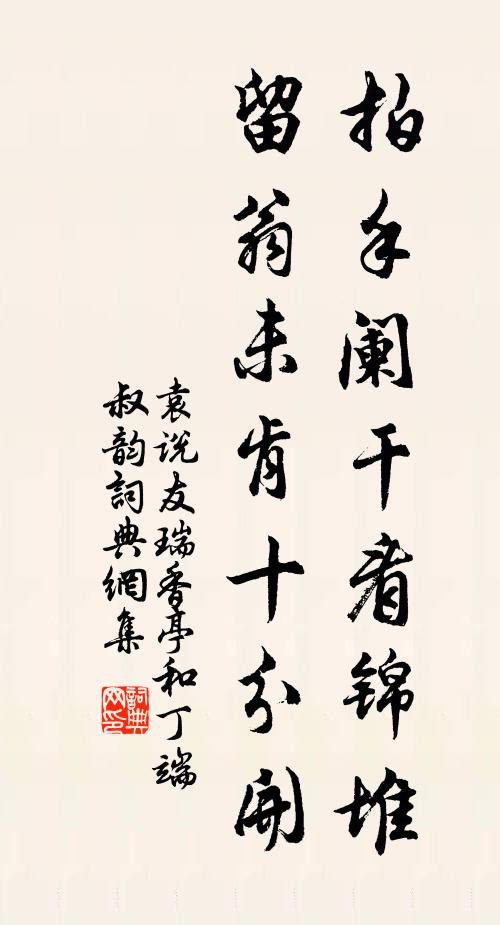 拍手阑干看锦堆
留翁未肯十分開
袁说友瑞香亭和丁端
叔韵詞典網集
詞典網印